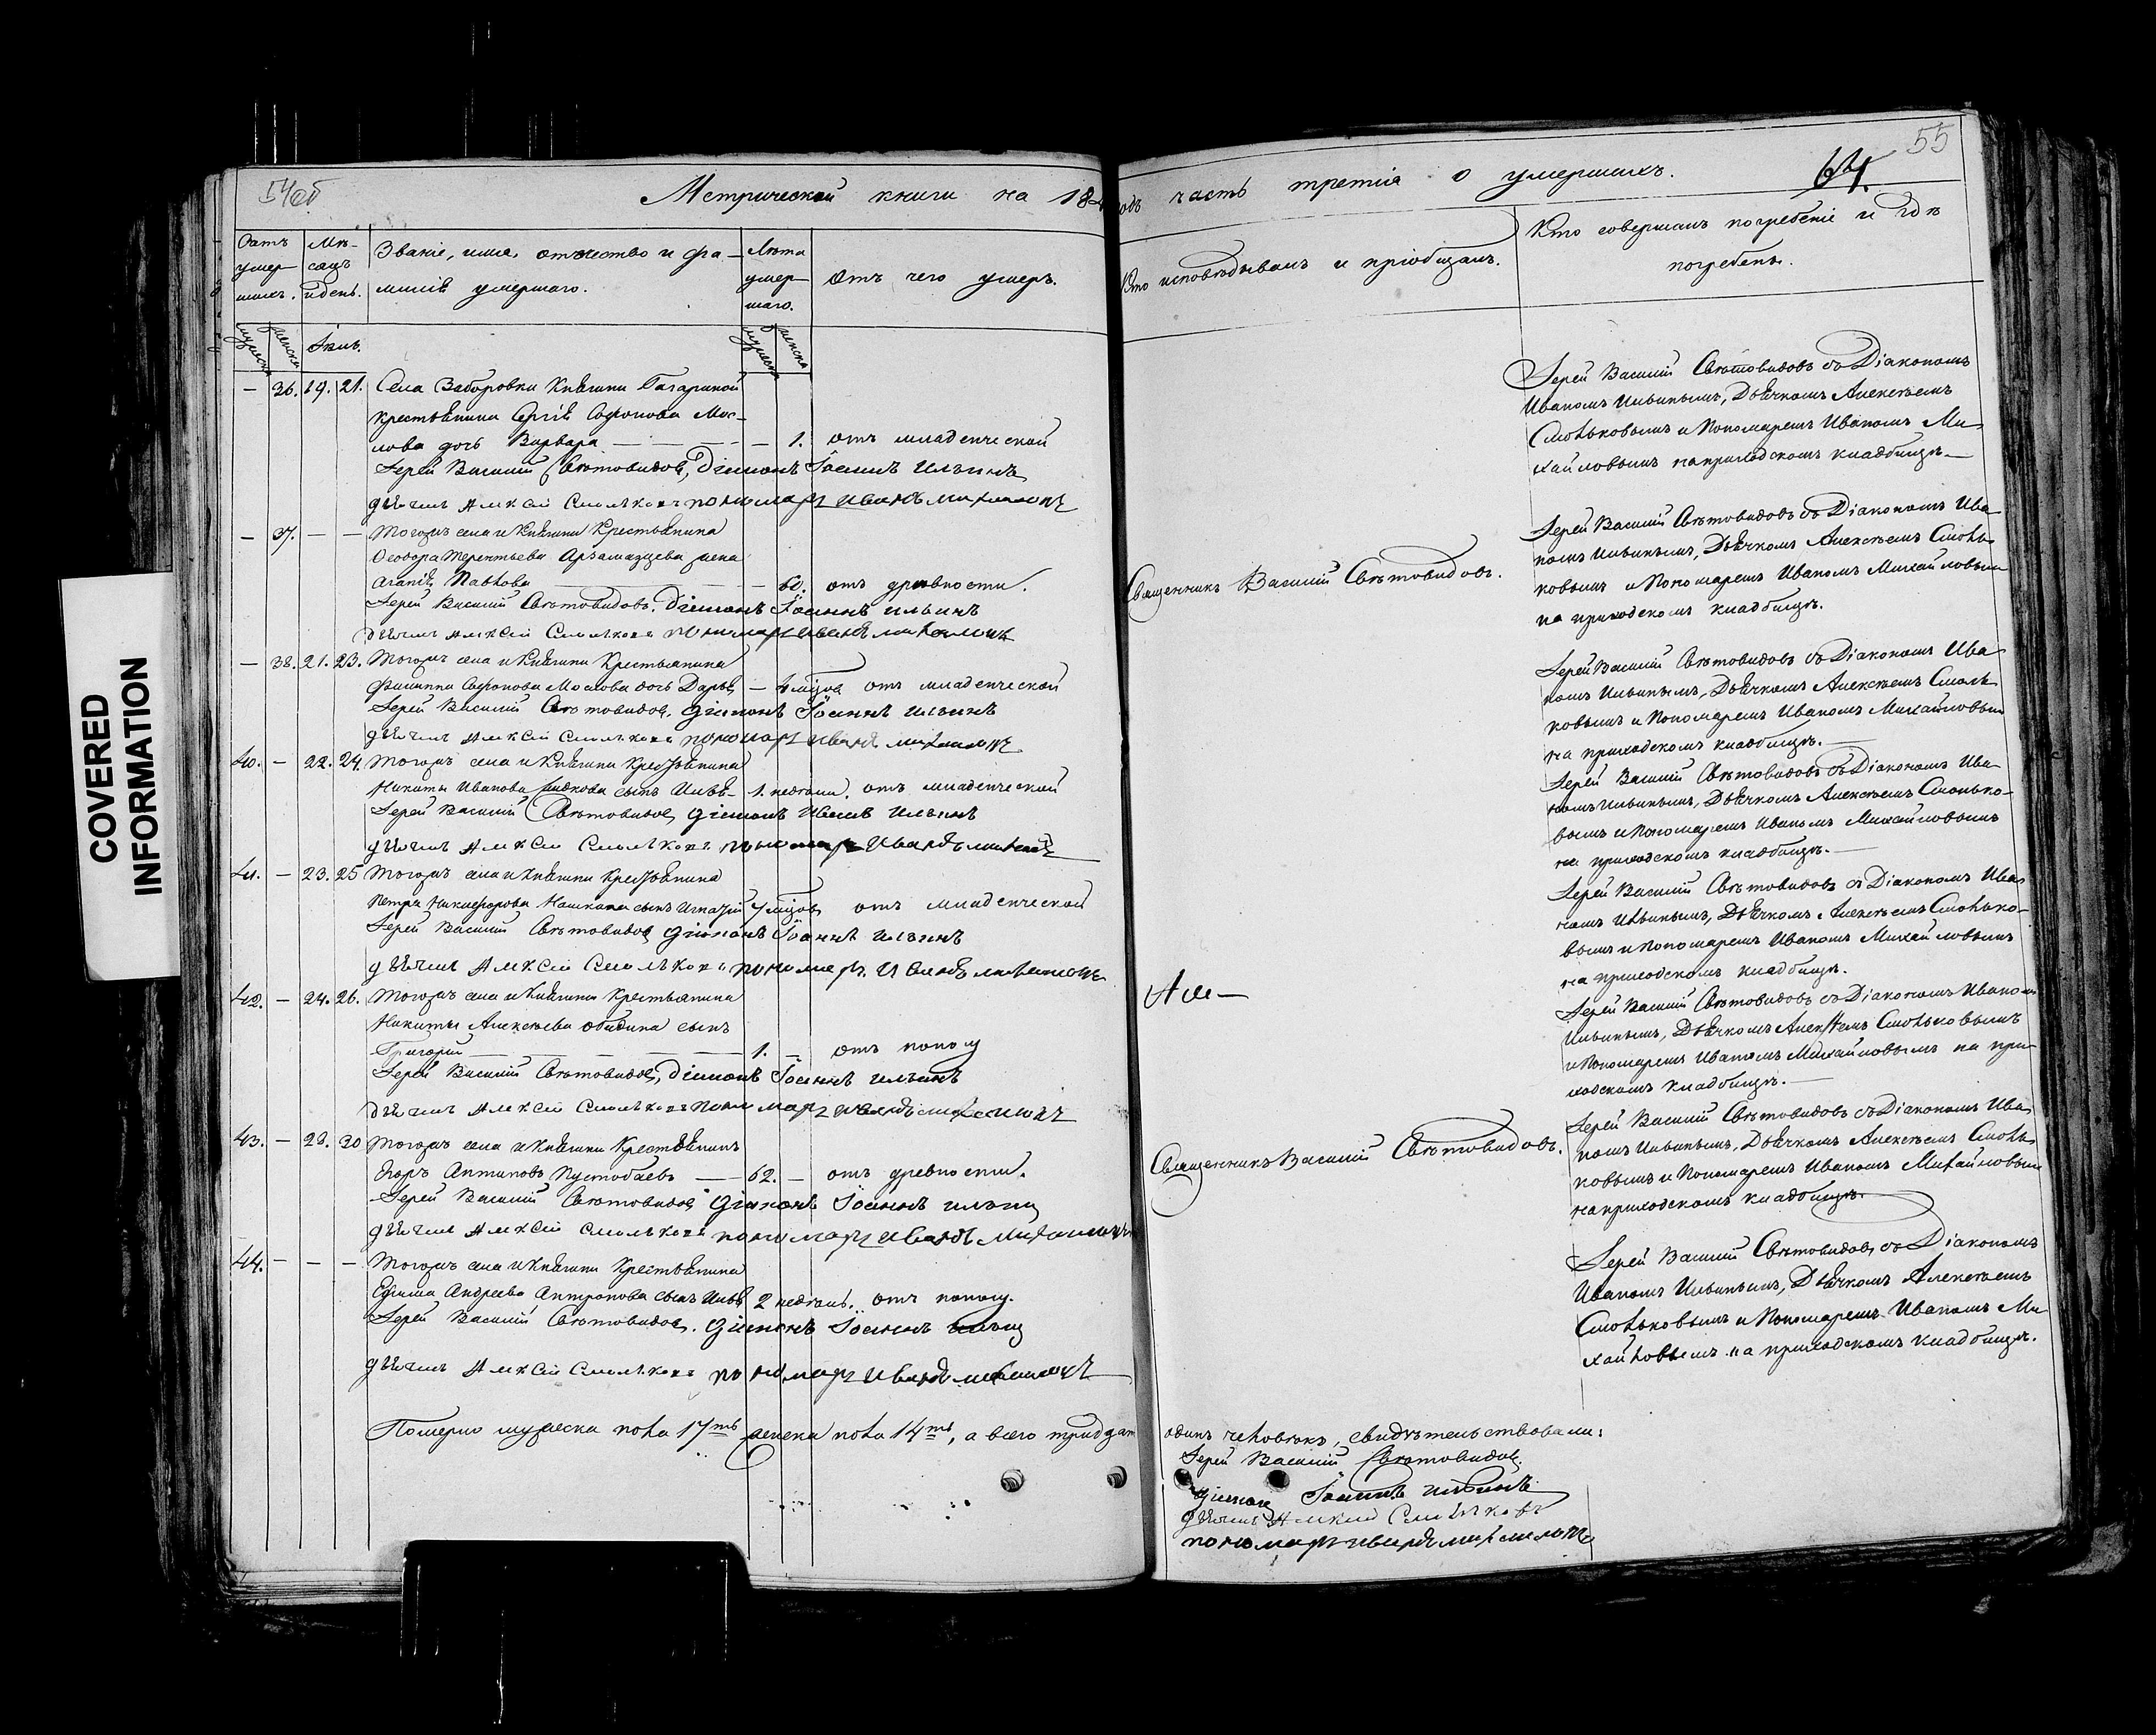 54об
Метрической книги на 18
часть третія о умершихъ.
64.
55
Счетъ умер-шихъ.
Мѣ-сяцъ и день.
Званіе, имя, отчество и фа-
милія умершаго.
Лѣта умер-шаго.
Отъ чего умеръ.
Кто исповѣдывалъ и пріобщалъ.
Кто совершалъ погребеніе и гдѣ
погребены.
мужеска женска
Іюль.
мужеска женска
— 36. 19. 21. Села Заборовки Княгини Гагариной
крестьянина Сергія Софонова Мос-
лова дочь Варвара — — — — 1. отъ младенческой
Іерей Василій Свѣтовидовъ, Діаконъ Іоаннъ Ильинъ
дьячекъ Алексій Смольковъ пономарь Иванъ Михайловъ
Іерей Василій Свѣтовидовъ съ Діакономъ
Иваномъ Ильинымъ, Дьячкомъ Алексѣемъ
Смольковымъ и Пономаремъ Иваномъ Ми-
хайловымъ на приходскомъ кладбищѣ.—
— 37. — — Тогожъ села и Княгини Крестьянина
Ѳеодора Терентьева Арзамазцева жена
Агафія Павлова — — — 60. отъ древности.
Іерей Василій Свѣтовидовъ. Діаконъ Іоаннъ Ильинъ
дьячекъ Алексій Смольковъ пономарь Иванъ Михайловъ
Священникъ Василій Свѣтовидовъ.
Іерей Василій Свѣтовидовъ съ Діакономъ Ива-
номъ Ильинымъ, Дьячкомъ Алексѣемъ Смоль-
ковымъ и Пономаремъ Иваномъ Михайловымъ
на приходскомъ кладбищѣ.
— 38. 21. 23. Тогожъ села и Княгини Крестьянина
Филиппа Софонова Мослова дочь Дарья — 4 мѣсяцовъ отъ младенческой
Іерей Василій Свѣтовидовъ. діаконъ Іоаннъ Ильинъ
дьячекъ Алексій Смольковъ пономарь Иванъ Михайловъ
Іерей Василій Свѣтовидовъ съ Діакономъ Ива-
номъ Ильинымъ, Дьячкомъ Алексѣемъ Смоль-
ковымъ и Пономаремъ Иваномъ Михайловымъ
на приходскомъ кладбищѣ.—
40. — 22. 24. Тогожъ села и Княгини Крестьянина
Никиты Иванова сынъ Илья — 1. недѣли. отъ младенческой
Іерей Василій Свѣтовидовъ, діаконъ Иванъ Ильинъ
дьячекъ Алексій Смольковъ пономарь Иванъ Михайловъ
Іерей Василій Свѣтовидовъ съ Діакономъ Ива-
номъ Ильинымъ, Дьячкомъ Алексѣемъ Смолько-
вымъ и Пономаремъ Иваномъ Михайловымъ
на приходскомъ кладбищѣ.—
41. — 23. 25 Тогожъ села и Княгини Крестьянина
Петра Никифорова сынъ Игнатій 7 мѣсяцовъ отъ младенческой
Іерей Василій Свѣтовидовъ діаконъ Іоаннъ Ильинъ
дьячекъ Алексій Смольковъ пономарь Иванъ Михайловъ
Іерей Василій Свѣтовидовъ съ Діакономъ Ива-
номъ Ильинымъ, Дьячкомъ Алексѣемъ Смолько-
вымъ и Пономаремъ Иваномъ Михайловымъ
на приходскомъ кладбищѣ.
42. — 24. 26. Тогожъ села и Княгини Крестьянина
Никиты Алексѣева Обидина сынъ
Григорій — — — — 1. — отъ поносу
Іерей Василій Свѣтовидовъ, Діаконъ Іоаннъ Ильинъ
дьячекъ Алексій Смольковъ пономарь Иванъ Михайловъ
Іерей Василій Свѣтовидовъ съ Діакономъ Иваномъ
Ильинымъ, Дьячкомъ Алексѣемъ Смольковымъ
и Пономаремъ Иваномъ Михайловымъ на при-
ходскомъ кладбищѣ.—
43. — 28. 30 Тогожъ села и Княгини Крестьянинъ
Егоръ Антиповъ Пустобаевъ — 62. — отъ древности.
Іерей Василій Свѣтовидовъ діаконъ Іоаннъ Ильинъ
дьячекъ Алексій Смольковъ пономарь Иванъ Михайловъ
Священникъ Василій Свѣтовидовъ.
Іерей Василій Свѣтовидовъ съ Діакономъ Ива-
номъ Ильинымъ, Дьячкомъ Алексѣемъ Смоль-
ковымъ и Пономаремъ Иваномъ Михайловымъ
на приходскомъ кладбищѣ.
44. — — — Тогожъ села и Княгини Крестьянина
Ефима Андреева Антропова сынъ Илья 2 недѣль. отъ поносу.
Іерей Василій Свѣтовидовъ. діаконъ Іоаннъ Ильинъ
дьячекъ Алексій Смольковъ пономарь Иванъ Михайловъ
Іерей Василій Свѣтовидовъ съ Діакономъ
Иваномъ Ильинымъ, Дьячкомъ Алексѣемъ
Смольковымъ и Пономаремъ Иваномъ Ми-
хайловымъ на приходскомъ кладбищѣ.
Померло мужеска пола 17ть женска пола 14ть, а всего тридцать
одинъ человѣкъ, свидѣтельствовали:
Іерей Василій Свѣтовидовъ
діаконъ Іоаннъ Ильинъ
дьячекъ Алексій Смольковъ
пономарь Иванъ Михайловъ
COVERED
INFORMATION